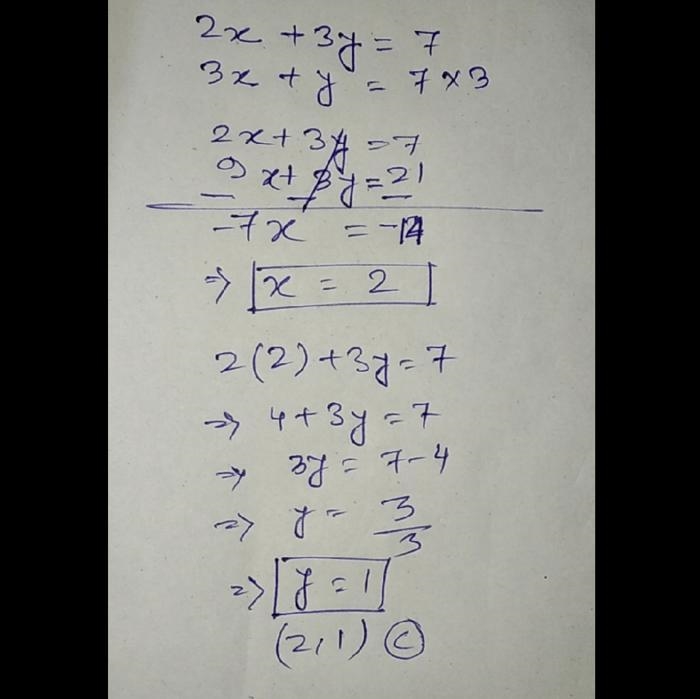 2x + 3y = 7
3x + y = 7 × 3
2x + 3y = 7
9x + 3y = 21
− − −
-7x = -14
⇒ x = 2
2(2) + 3y = 7
⇒ 4 + 3y = 7
⇒ 3y = 7 - 4
⇒ y = 3/3
⇒ y = 1
(2,1) ©